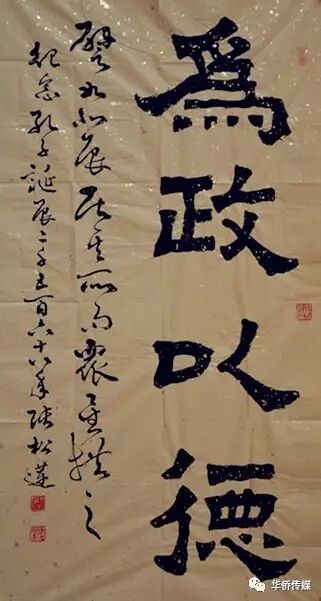 爲政以德
譬如北辰居其所而衆星拱之
紀念孔子誕辰二千五百六十六年張松蓮
华侨传媒